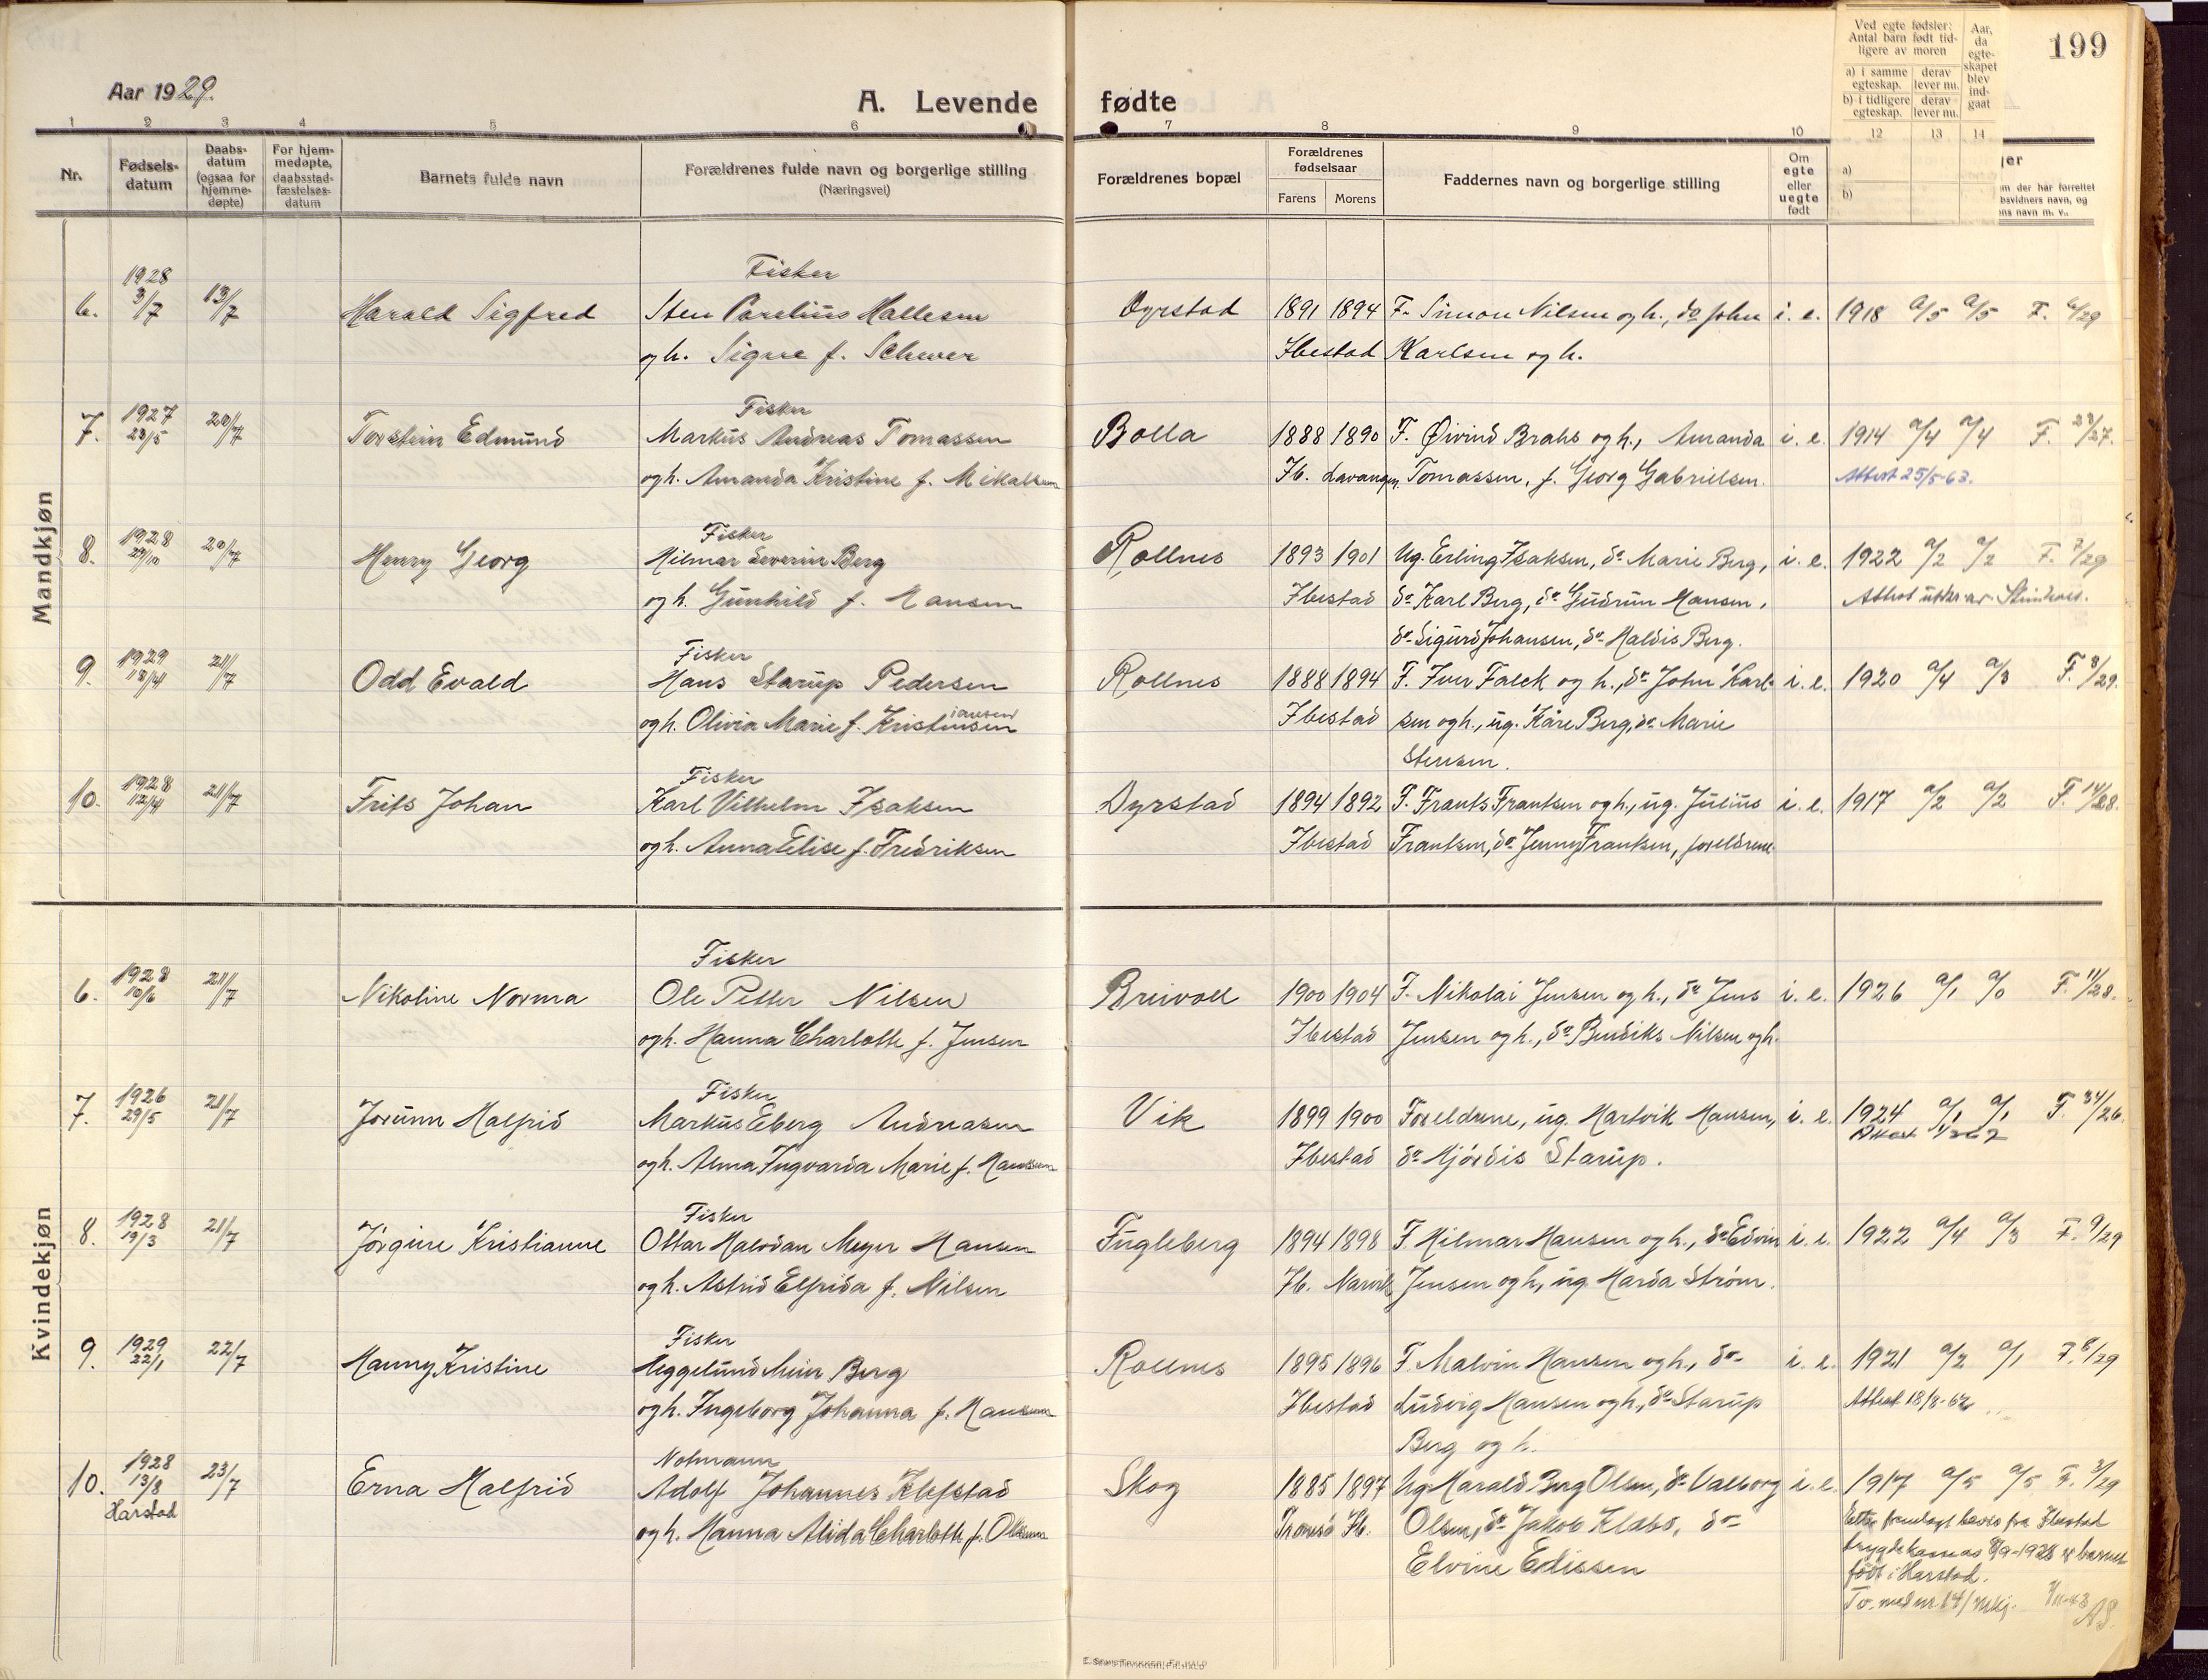 Aar 1929.
A. Levende fødte
199
Ved egte fødsler: Antal barn født tidligere av moren
Aar, da egteskapet blev indgaat
a) i samme egteskap. derav lever nu.
b) i tidligere egteskap. derav lever nu.
1 2 3 4 5 6 7 8 9 10 12 13 14
Nr.
Fødselsdatum
Daabsdatum (ogsaa for hjemmedøpte)
For hjemmedøpte, daabsstadfæstelsesdatum
Barnets fulde navn
Forældrenes fulde navn og borgerlige stilling
(Næringsvei)
Forældrenes bopæl
Forældrenes fødselsaar
Farens Morens
Faddernes navn og borgerlige stilling
Om egte eller uegte født
a)
b)
Mandkjøn
1928 Fisker
6. 3/7 13/7 Harald Sigfred Sten Parelius Hallesen Dyrstad 1891 1894 F. Simon Nilsen og h., do John i. e. 1918 a/5 a/5 F. 6/29
og h. Signe f. Schwer Ibestad Karlsen og h.
1927 Fisker
7. 23/5 20/7 Torstein Edmund Markus Andreas Tomassen Bolla 1888 1890 F. Øivind Brahs og h., Amanda i. e. 1914 a/4 a/4 F. 28/27.
og h. Amanda Kristine f. Mikalsen Ib. Lavangen. Tomassen, f. Georg Gabrielsen. Attest 25/5-63.
1928 Fisker
8. 29/10 20/7 Henry Georg Hilmar Severin Berg Rollnes 1893 1901 Ug. Erling Isaksen, do Marie Berg, i. e. 1922 a/2 a/2 F. 7/29
og h. Gunhild f. Hansen Ibestad do Karl Berg, do Gudrun Hansen,
do Sigurd Johansen, do Haldis Berg.
1929 Fisker
9. 13/4 21/7 Odd Evald Hans Starup Pedersen Rollnes 1888 1894 F. Iver Falck og h., do John Karl- i. e. 1920 a/4 a/3 F. 8/29.
og h. Olivia Marie f. Kristensen iansen Ibestad sen og h., ug. Kåre Berg, do Marie
Stensen.
1928 Fisker
10. 12/4 21/7 Frits Johan Karl Vilhelm Isaksen Dyrstad 1894 1892 F. Frants Frantsen og h., ug. Julius i. e. 1917 a/2 a/2 F. 14/28.
og h. Anna Elise f. Fredriksen Ibestad Frantsen, do Jenny Frantsen, foreldrene
Kvindekjøn
1928 Fisker
6. 10/6 21/7 Nikoline Norma Ole Petter Nilsen Breivoll 1900 1904 F. Nikolai Jensen og h., do Jens i. e. 1926 a/1 a/0 F. 11/28.
og h. Hanna Charlotte f. Jensen Ibestad Jensen og h., do Bendiks Nilsen og h.
1926 Fisker
7. 29/5 21/7 Jorunn Halfrid Markus Eberg Andreasen Vik 1899 1900 Foreldrene, ug. Hartvik Hansen, i. e. 1924 a/1 a/1 F. 34/26.
og h. Alma Ingvarda Marie f. Hansen Ibestad do Hjördis Starup.
1928 Fisker
8. 19/3 21/7 Jörgine Kristianne Ottar Halvdan Meyer Hansen Fugleberg 1894 1898 F. Hilmar Hansen og h., do Edvin i. e. 1922 a/4 a/3 F. 9/29
og h. Astrid Elfrida f. Nilsen Ib. Narvik Jensen og h., ug. Harda Ström.
1929 Fisker
9. 22/1 22/7 Hanny Kristine Heggelund Meier Berg Rollnes 1895 1896 F. Malvin Hansen og h., do i. e. 1921 a/2 a/1 F. 8/29
og h. Ingeborg Johanna f. Hansen Ibestad Ludvig Hansen og h., do Starup Attest 18/8-62
Berg og h.
1928 Notmann
10. 13/8 23/7 Erna Halfrid Adolf Johannes Klefstad Skog 1885 1897 Ug. Harald Berg Olsen, do Valborg i. e. 1917 a/5 a/5 F. 3/29
Harstad og h. Hanna Alida Charlotte f. Olsen Tromsö Ib. Olsen, do Jakob Klabo, do
Elvine Edissen
født i Harstad.